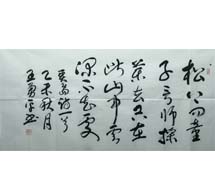 松下问童
子言师採
药去只在
此山中云
深不知处
贾岛诗一首
乙未秋月
王勇平书